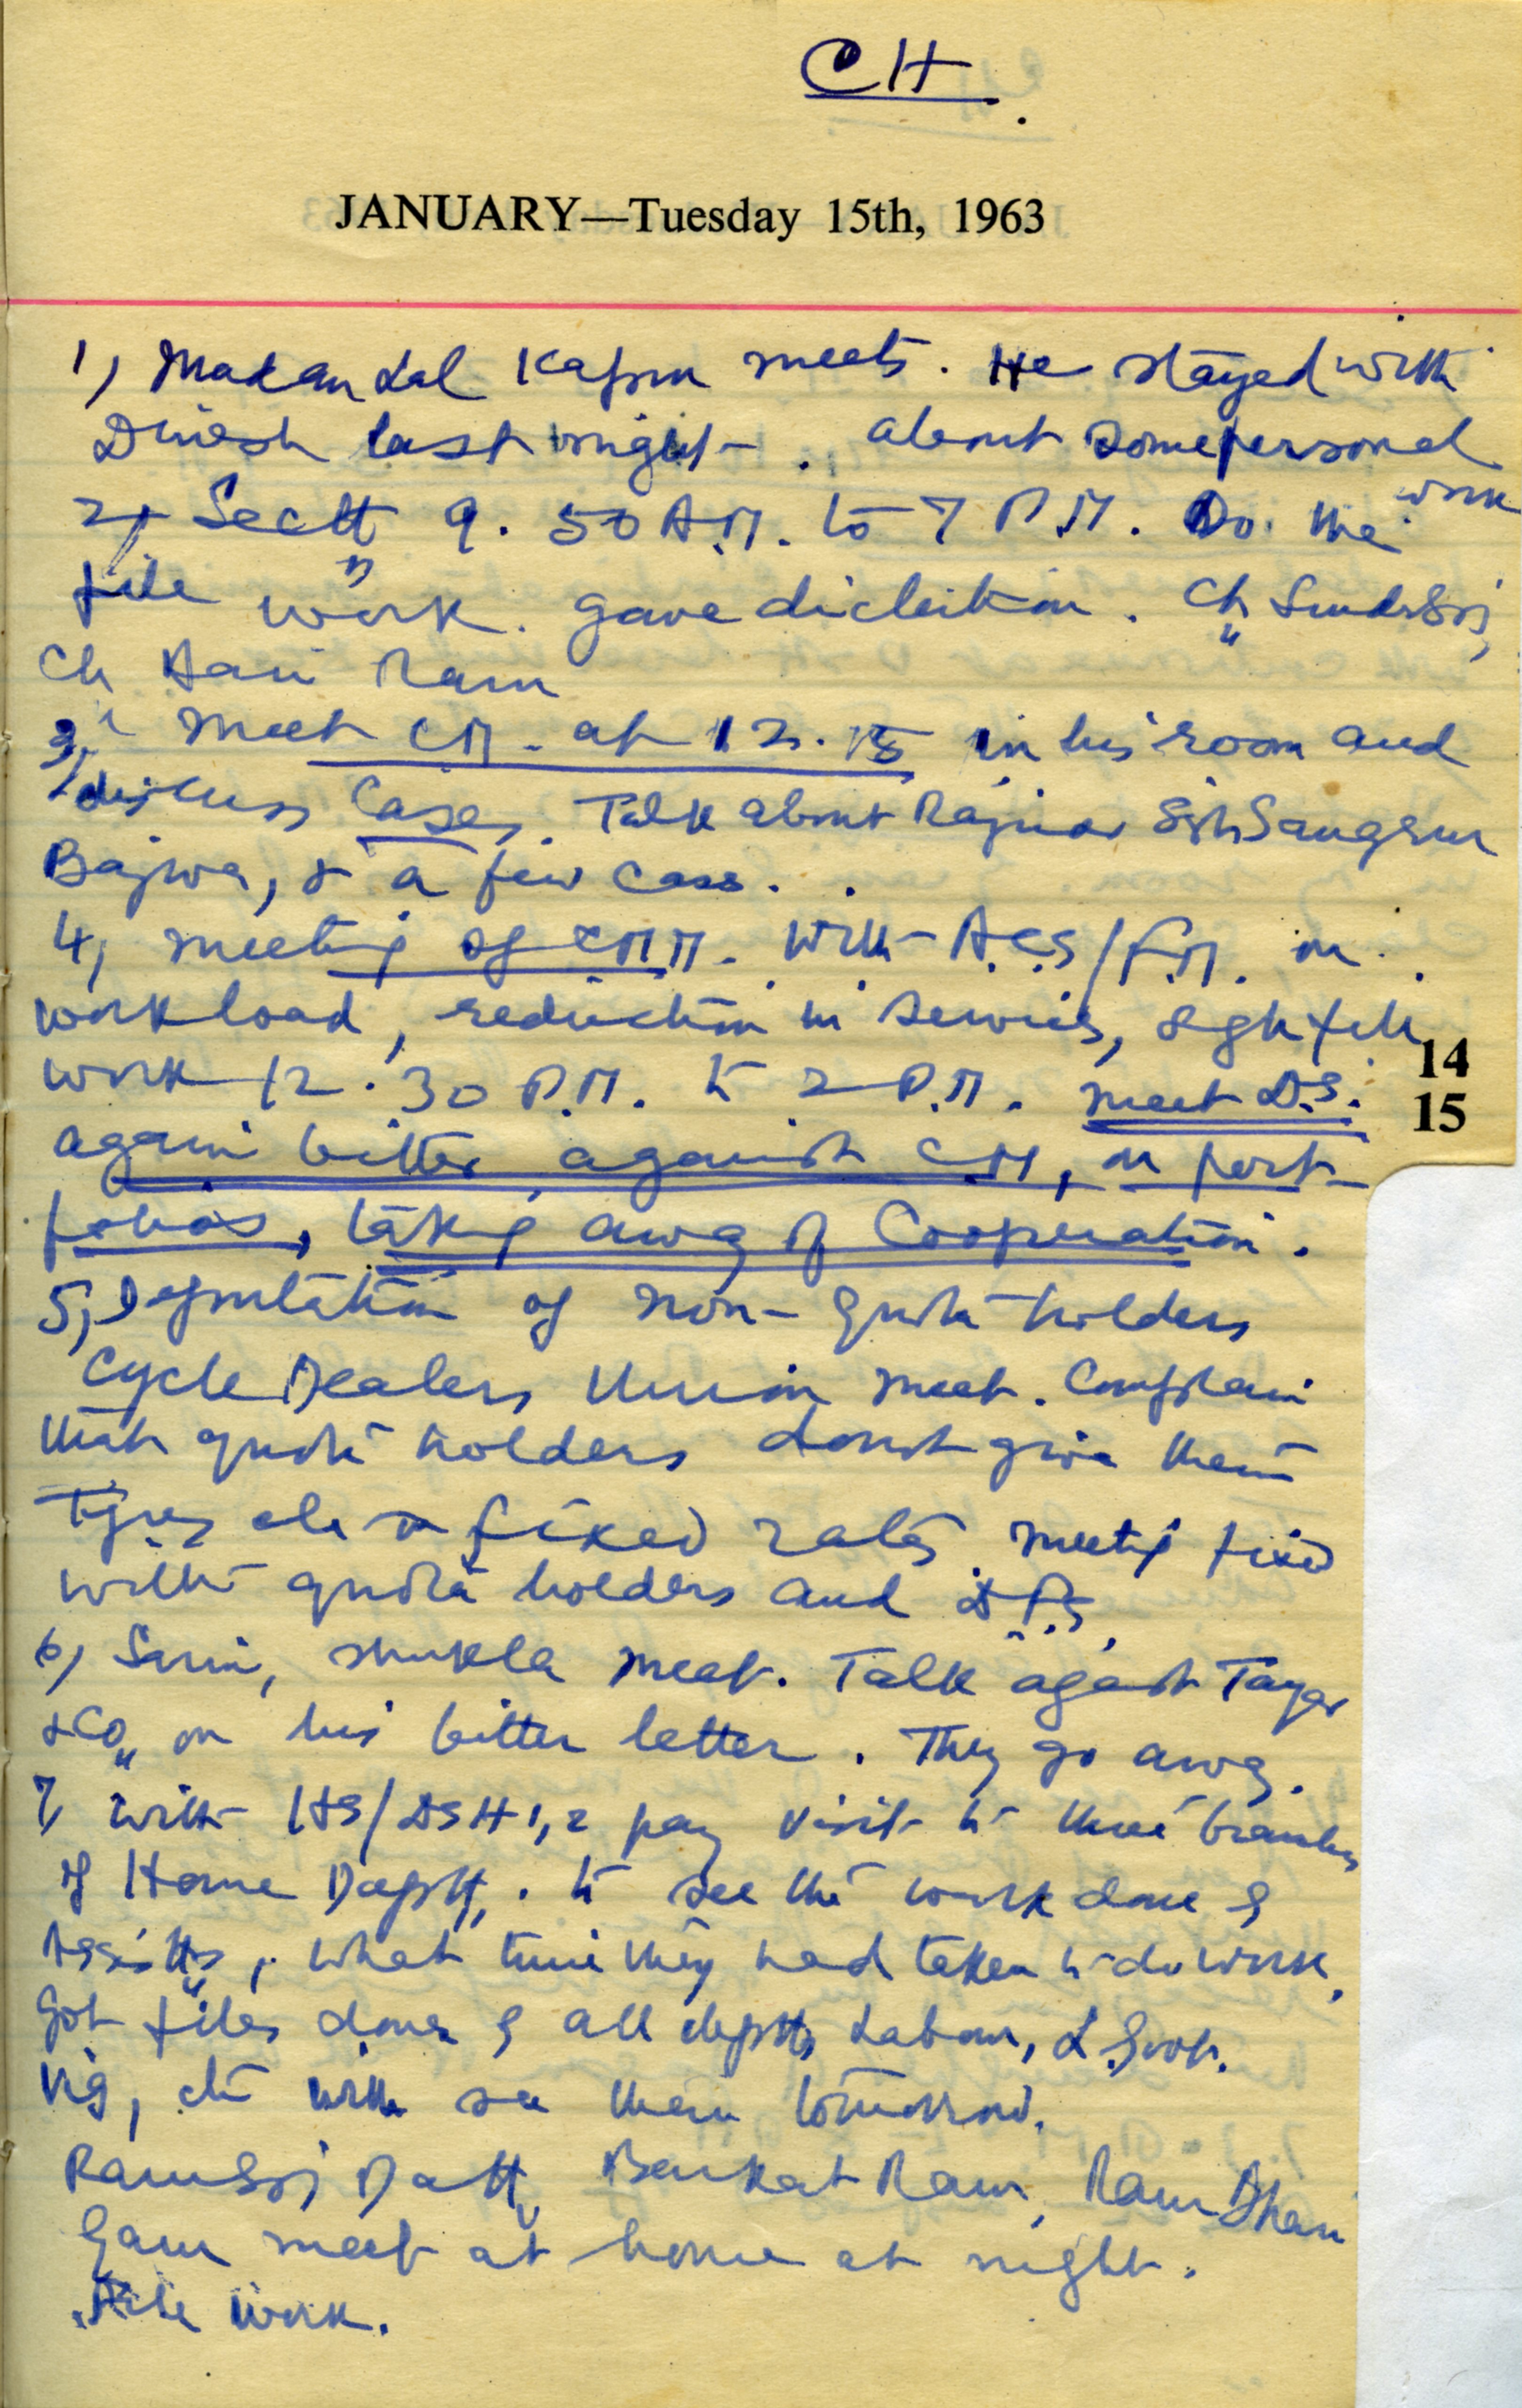 CH.
JANUARY—Tuesday 15th, 1963
1) Makan Lal Kapur meets. He stayed with
Dinesh last night. about some personal
work
2) Sectt 9.50 A.M. to 7 P.M. Do the
file work. gave dictation. Ch
Ch Hari Ram
3) Meet CM. at 12.15 in his room and
discuss Cases. Talk about Rajinder Sgh Sangrur
Bajwa, & a few cases.
4) meeting of with A.C.S/F.M. on
workload, reduction in services, file
work 12.30 P.M. to 2 P.M. meet D.S.
again bitter against CM, on port-
folios, taking away of Cooperation.
5) Deputation of non-quota holders
Cycle Dealers Union meet. Complain
that quota holders donot give them
Tyres etc on fixed rates. meeting fixed
with quota holders and
6) Saini, Shukla meet. Talk against
& Co on his bitter letter. They go away.
7) with HS/DSH 1,2 pay visit to three branches
of Home Deptt. to see the work done by
Assistts, what time they had taken to do work,
Got files done by all deptts Labour, L.Govt.
Vig, etc will see them tomorrow.
Datt, Barkat Ram, Ram Dhari
Gaur meet at home at night.
File work.
14
15